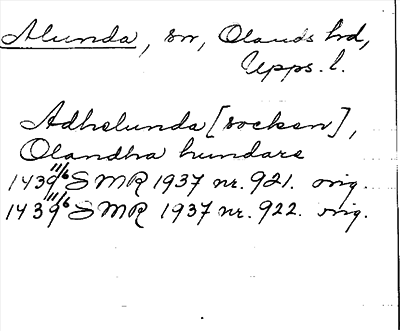 Alunda, sn, Olands hd,
Upps. l.
Adhelunda [socken],
Olandha hundare
1439 11/6 SMR 1937 nr. 921. orig.
1439 11/6 SMR 1937 nr. 922. orig.